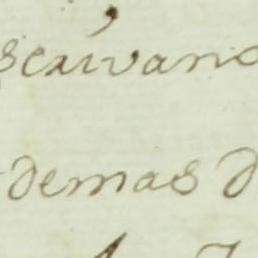 scrivano
demas d